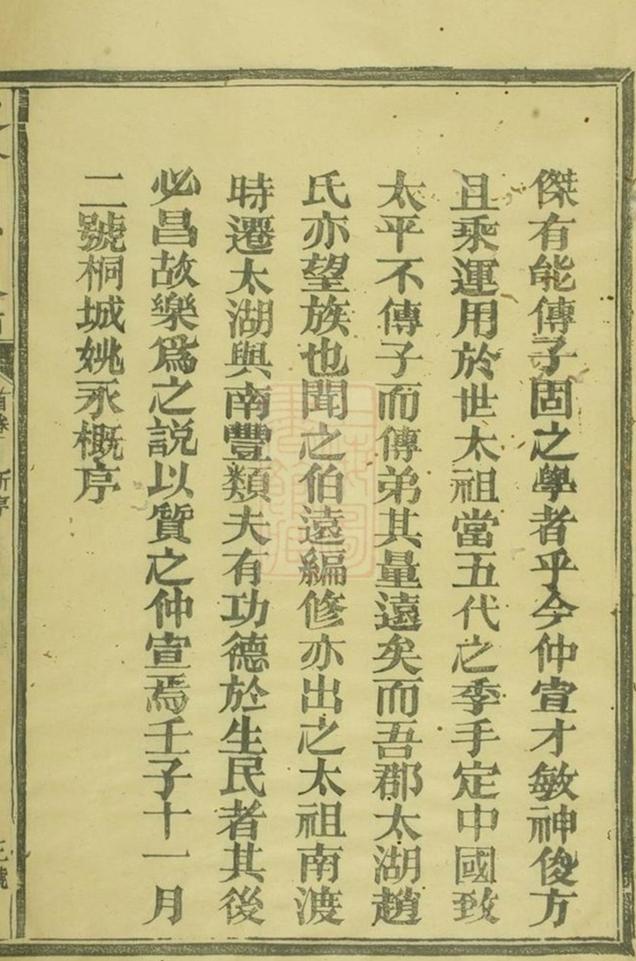 傑有能傳子固之學者乎今仲宣才敏神俊方
且乘運用於世太祖當五代之季手定中國致
太平不傳子而傳弟其量遠矣而吾郡太湖趙
氏亦望族也聞之伯遠編修亦出之太祖南渡
時遷太湖與南豐類夫有功德於生民者其後
必昌故樂爲之說以質之仲宣焉壬子十一月
二號桐城姚永概序